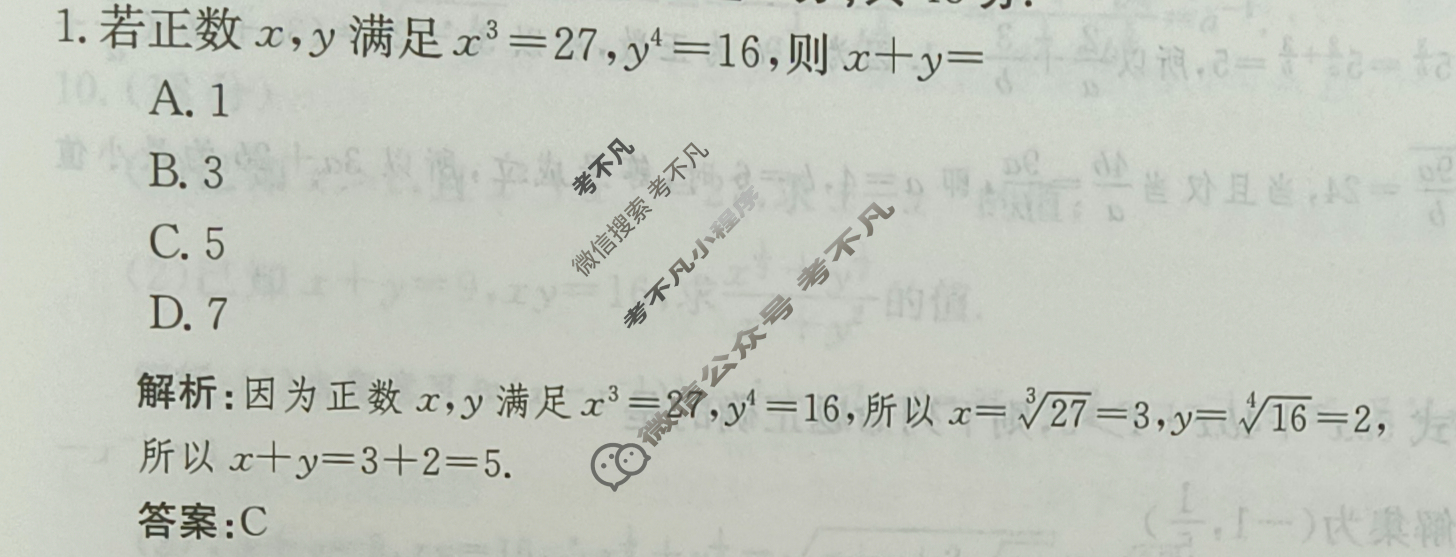 1. 若正数 x,y 满足 x³=27,y⁴=16,则 x+y=
A. 1
B. 3
C. 5
D. 7
解析:因为正数 x,y 满足 x³=27,y⁴=16,所以 x=∛27=3,y=∜16=2,
所以 x+y=3+2=5.
答案:C
考不凡
微信搜索 考不凡
考不凡小程序
微信公众号 考不凡